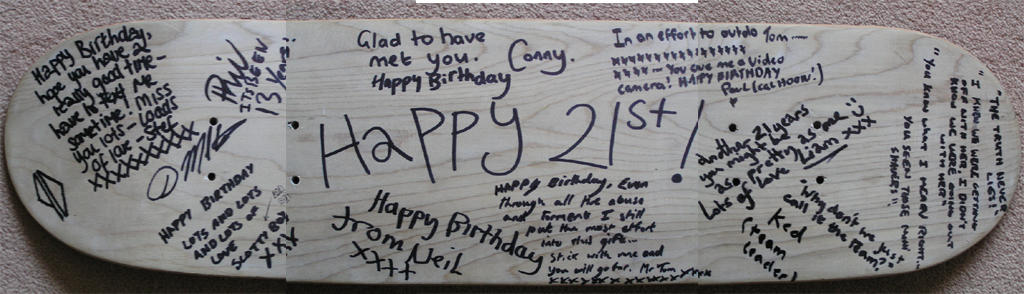 Happy Birthday,
hope you have a
really good time -
have to form me
sometime! Miss
you lots - Loads
of love - Stef
xxxxxxxx
Phil
IT'S BEEN
13 Years!
HAPPY BIRTHDAY
LOTS AND LOTS
AND LOTS OF
LOVE
SCOTTY BOY
XXX
Glad to have
met you. Conny.
Happy Birthday
In an effort to outdo Tom.....
xxxxxxxxxxxxx
xxxx... You owe me a video
camera! HAPPY BIRTHDAY
Paul (calhoon!)
HAPPY 21st!
Happy Birthday
from Neil
xxxx
HAPPY Birthday, Even
through all the abuse
and torment I still
put the most effort
into this gift...
stick with me and
you will go far. Mr Tom
xxxxxxxxxxxxxxxxx
another 21 years
you might be
as pretty as me
Lots of love Liam
xxx
"Why don't we just
call it the team?"
Ked
(Team
Leader)
"THE TRUTH NEVER
LIES!"
"I KNOW WE WERE GETTING
OFF WITH HER I DIDN'T
KNOW WE WERE GOING OUT
WITH HER"
"YOU KNOW WHAT I MEAN RIGHT...
YOU SEEN THOSE NOW
SHINERS"